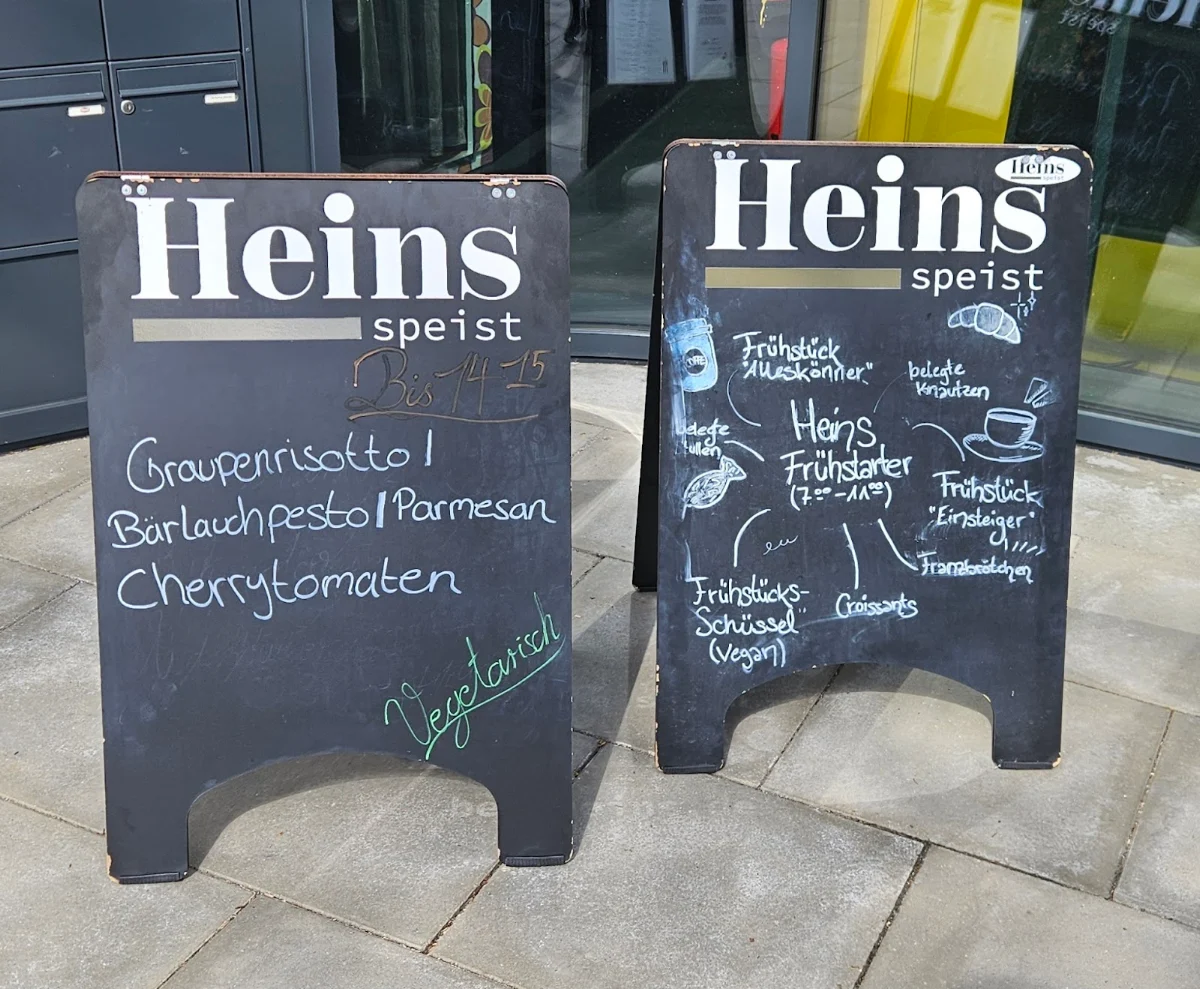 Heins
speist
Bis 14 15
Graupenrisotto |
Bärlauchpesto | Parmesan
Cherrytomaten
Vegetarisch
Heins
Heins
speist
speist
Frühstück
"Alleskönner"
belegte
Knautzen
belegte
Heins
Frühstarter
(7.00-11.00)
Frühstück
"Einsteiger"
Franzbrötchen
Frühstücks-
Schüssel"
(vegan)
Croissants